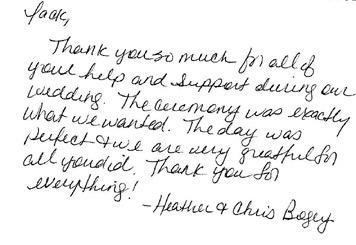 Jack,
Thank you so much for all of
your help and support during our
wedding. The ceremony was exactly
what we wanted. The day was
perfect & we are very greatful for
all you did. Thank you for
everything!
- Heather & Chris Bogey